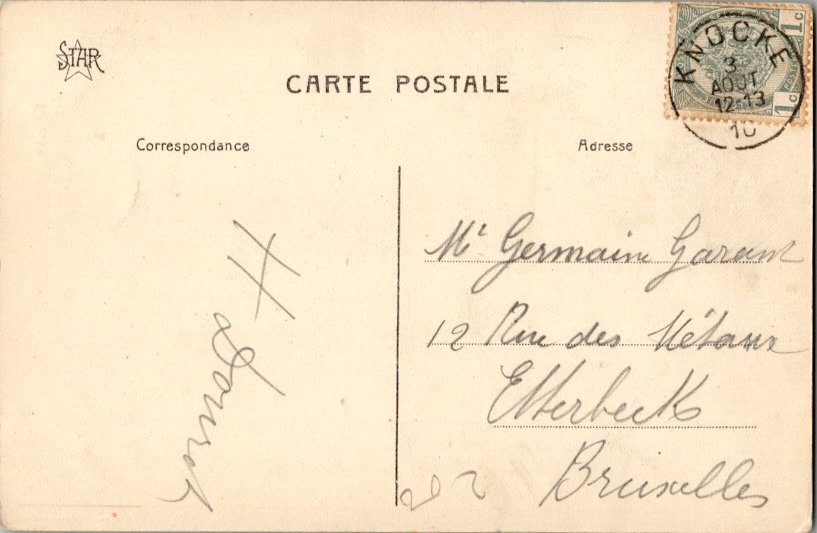 STAR
CARTE POSTALE
1c
1c
KNOCKE
3
AOUT
12-13
10
Correspondance
Adresse
Mr Germain Garant
12 Rue des Métaux
Etterbeek
Bruxelles
H